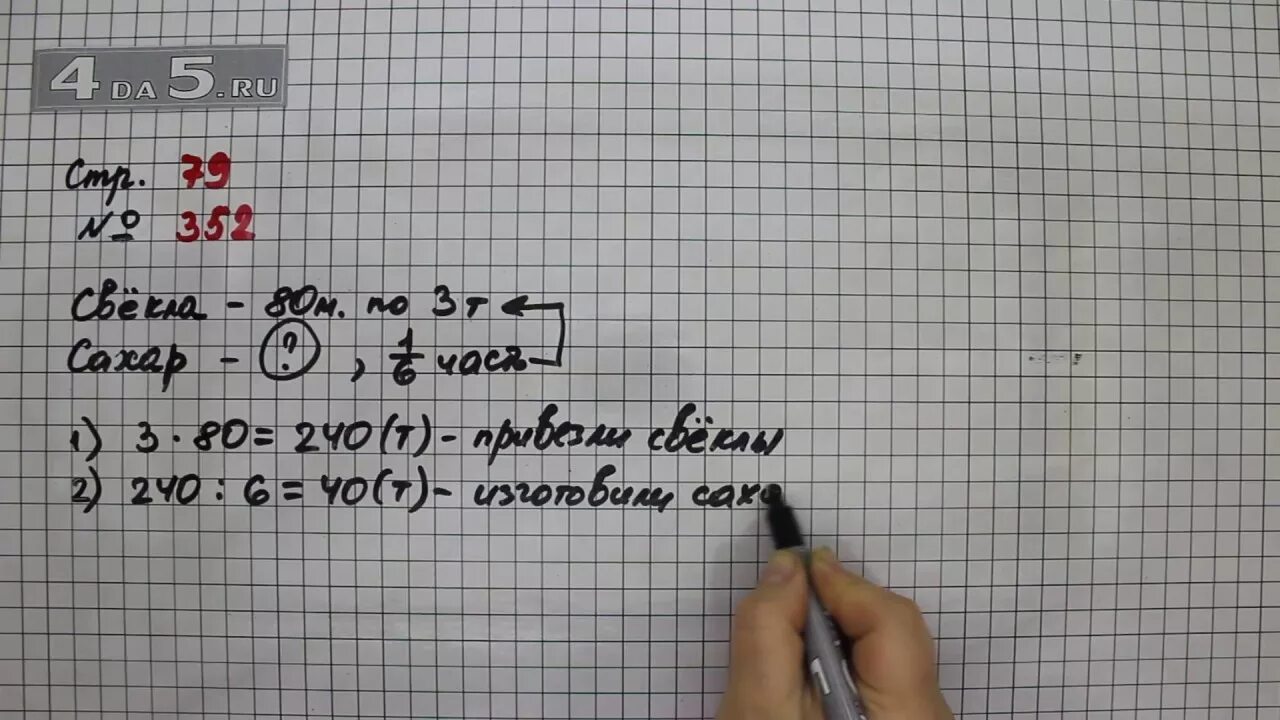 4DA5.RU
Стр. 79
№ 352
Свёкла - 80м. по 3т
Сахар - ? , 1/6 часть
1) 3 · 80 = 240 (т) - привезли свёклы
2) 240 : 6 = 40 (т) - изготовили саха